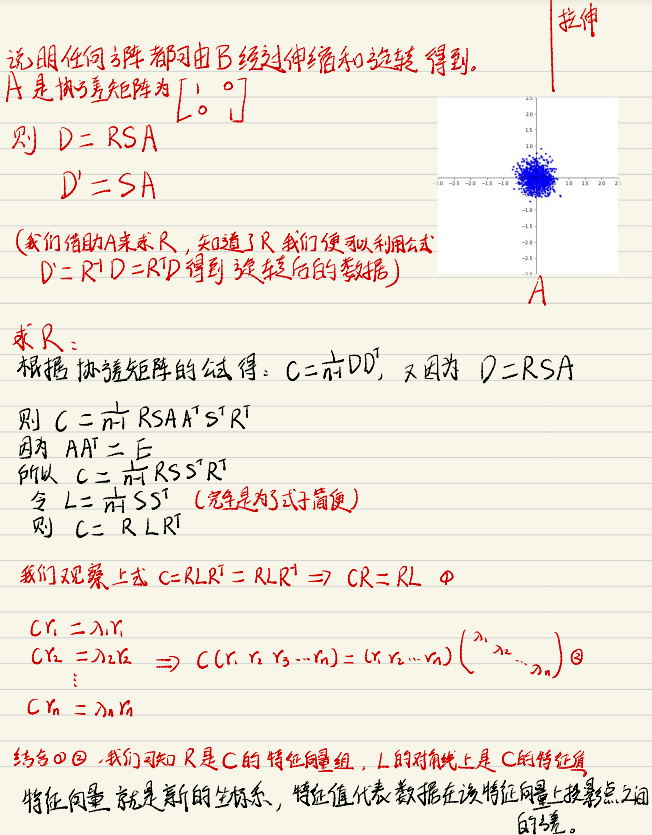 拉伸
说明任何方阵都可由B经过伸缩和旋转得到。
A是协方差矩阵为 [1 0
0 1]
则 D = RSA
D' = SA
(我们借助A来求R, 知道了R我们便可以利用公式
D' = R⁻¹D = RᵀD 得到旋转后的数据)
2.5
2.0
1.5
1.0
0.5
-3.0 -2.5 -2.0 -1.5 -1.0 0.5 1.0 1.5 2.0
-0.5
-1.0
-1.5
-2.0
-2.5
A
求R:
根据协方差矩阵的公式得: C = 1/n-1 DDᵀ, 又因为 D = RSA
则 C = 1/n-1 RSAAᵀSᵀRᵀ
因为 AAᵀ = E
所以 C = 1/n-1 RSSᵀRᵀ
令 L = 1/n-1 SSᵀ (完全是为了式子简便)
则 C = RLRᵀ
我们观察上式 C=RLRᵀ = RLR⁻¹ ⇒ CR = RL ①
Cr₁ = λ₁r₁
Cr₂ = λ₂r₂ ⇒ C(r₁ r₂ r₃ … rₙ) = (r₁ r₂ … rₙ) (λ₁ λ₂ … λₙ) ②
⋮
Crₙ = λₙrₙ
结合①②, 我们可知R是C的特征向量组, L的对角线上是C的特征值
特征向量就是新的坐标系, 特征值代表数据在该特征向量上投影点之间
的方差。